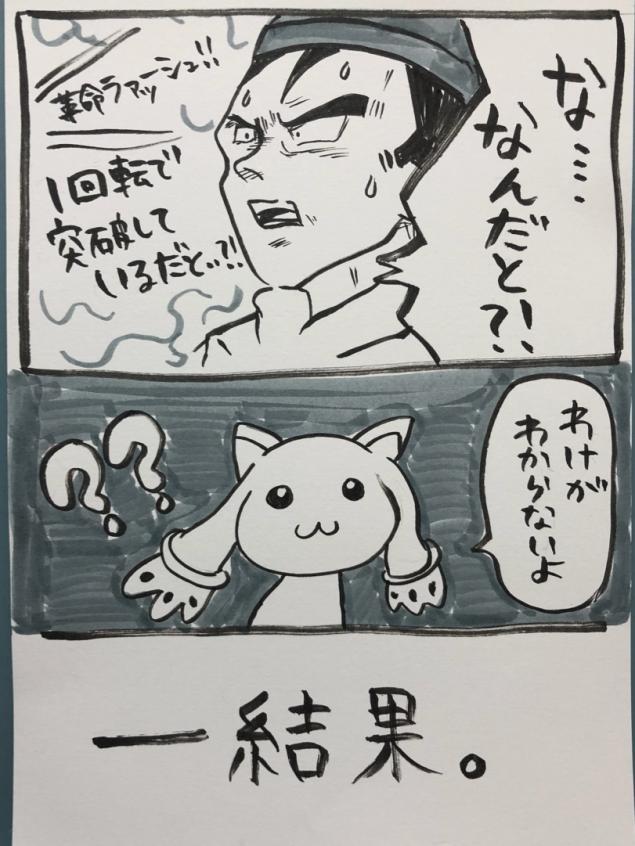 な…
なんだと?!
革命ラァッシュ!!
1回転で
突破して
いるだと‥?!!
わけが
わからないよ
??
一結果。